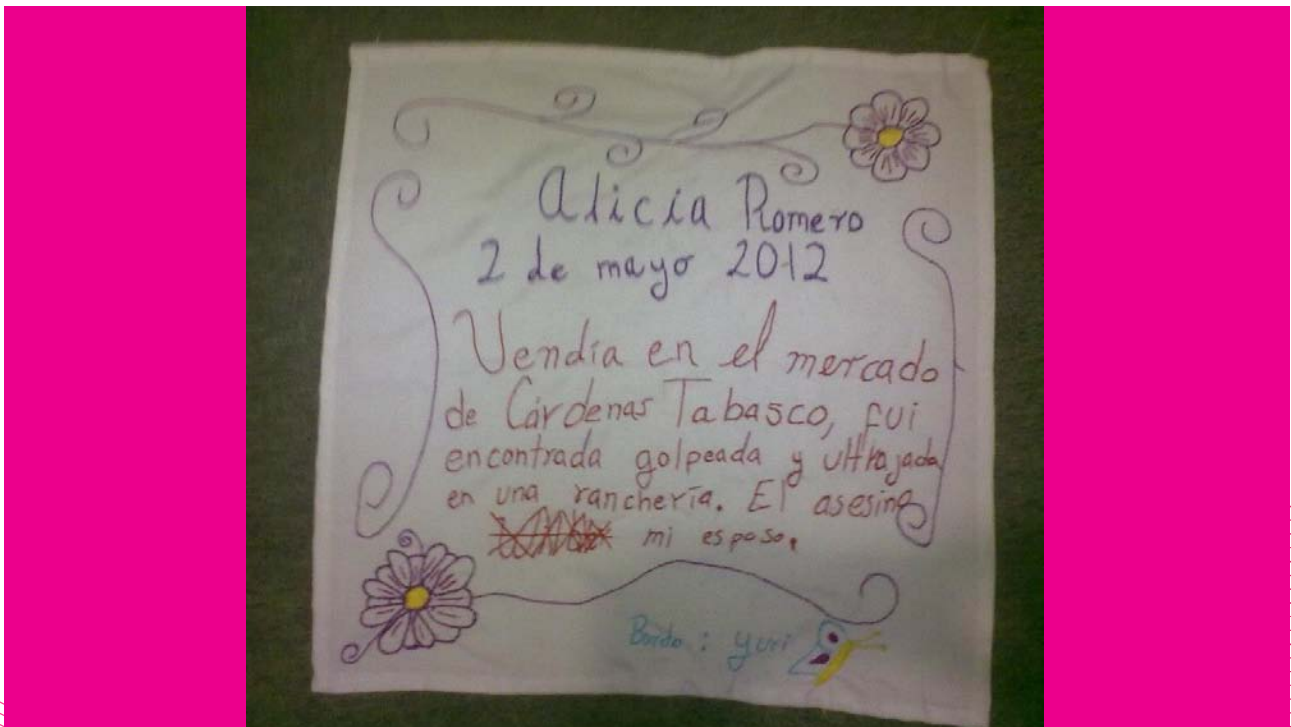 Alicia Romero
2 de mayo 2012
Vendía en el mercado
de Cárdenas Tabasco, fui
encontrada golpeada y ultrajada
en una ranchería. El asesino
mi esposo.
Bordo: Yuri